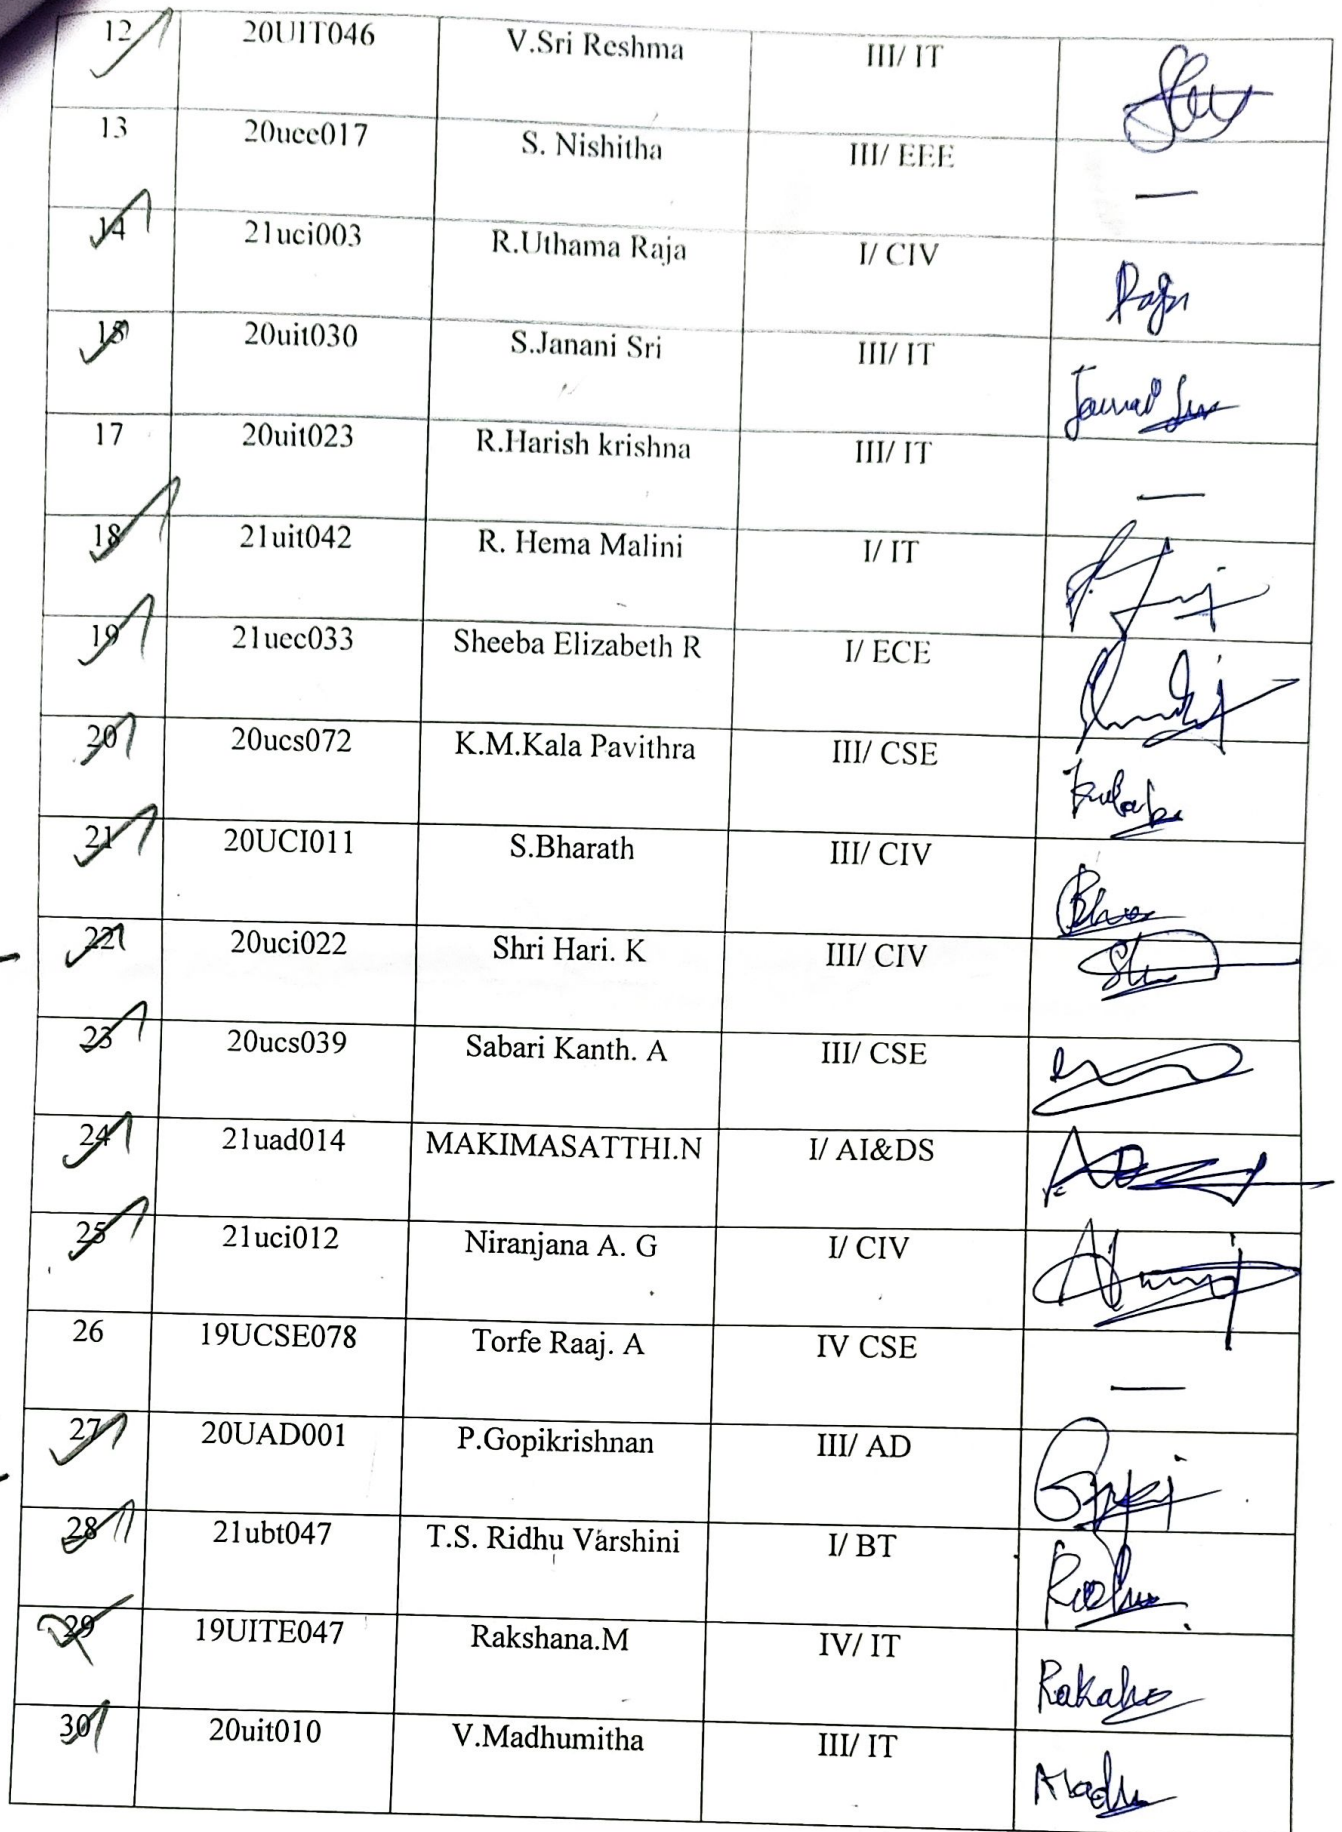 12 20UIT046 V.Sri Reshma III/ IT
13 20uee017 S. Nishitha III/ EEE —
14 21uci003 R.Uthama Raja I/ CIV Raja
15 20uit030 S.Janani Sri III/ IT Janani Sri
17 20uit023 R.Harish krishna III/ IT —
18 21uit042 R. Hema Malini I/ IT
19 21uec033 Sheeba Elizabeth R I/ ECE
20 20ucs072 K.M.Kala Pavithra III/ CSE
21 20UCI011 S.Bharath III/ CIV
22 20uci022 Shri Hari. K III/ CIV
23 20ucs039 Sabari Kanth. A III/ CSE
24 21uad014 MAKIMASATTHI.N I/ AI&DS
25 21uci012 Niranjana A. G I/ CIV
26 19UCSE078 Torfe Raaj. A IV CSE —
27 20UAD001 P.Gopikrishnan III/ AD
28 21ubt047 T.S. Ridhu Varshini I/ BT
29 19UITE047 Rakshana.M IV/ IT
30 20uit010 V.Madhumitha III/ IT Madhu